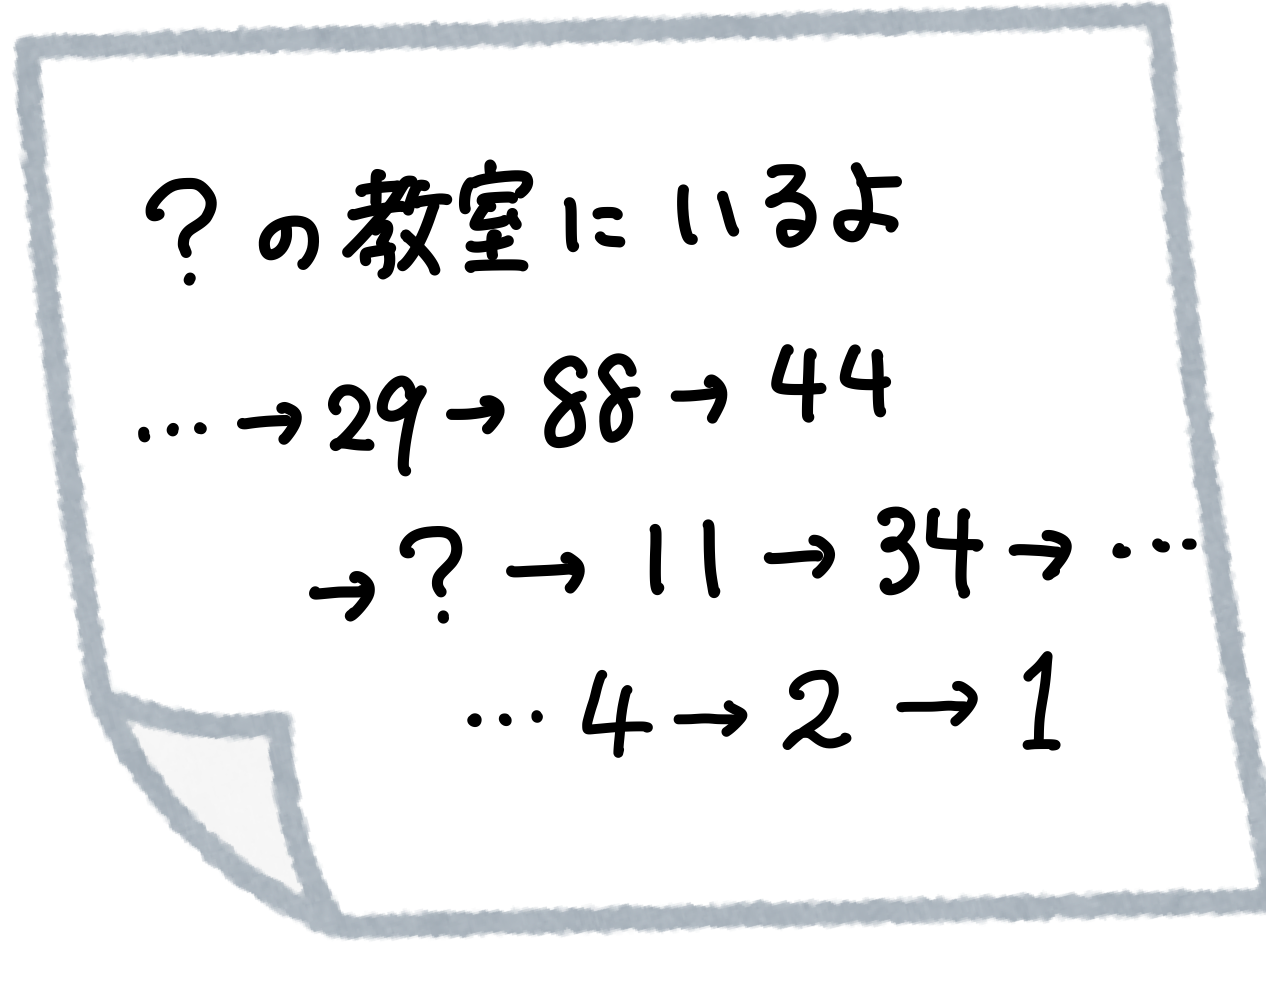 ?の教室にいるよ
…→29→88→44
→?→11→34→…
…4→2→1